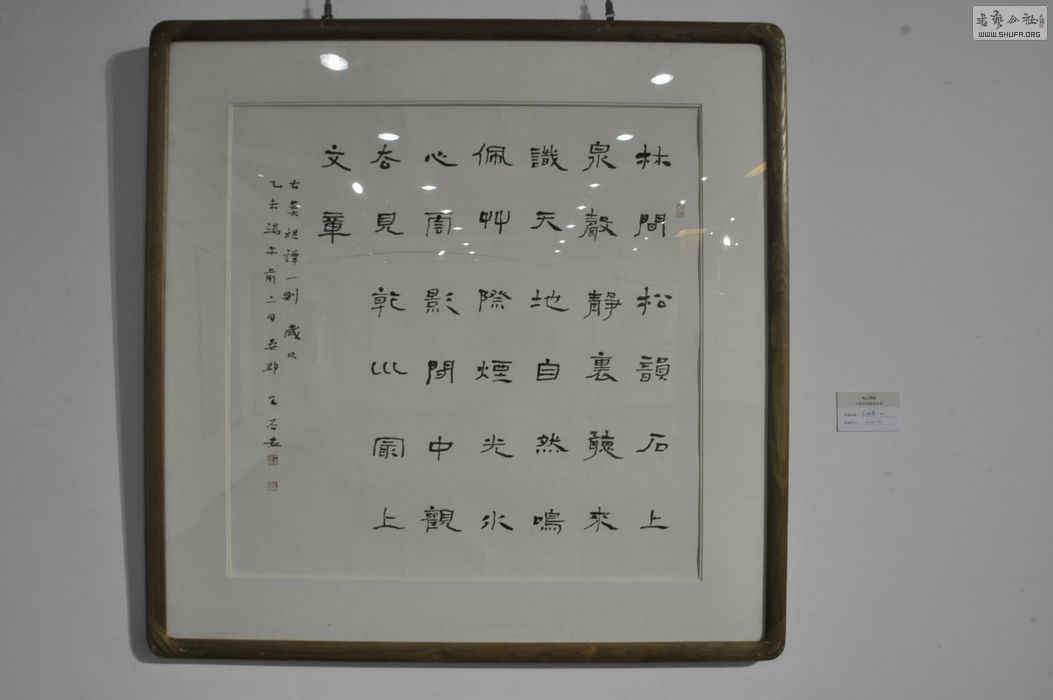 林間松韻石上
泉聲靜裏聽來
識天地自然鳴
佩艸際煙光水
心雲影間中觀
去見乾巛冣上
文章
右菜根譚一則歲次
乙未端午前二日吳郡王
書藝公社
WWW.SHUFA.ORG